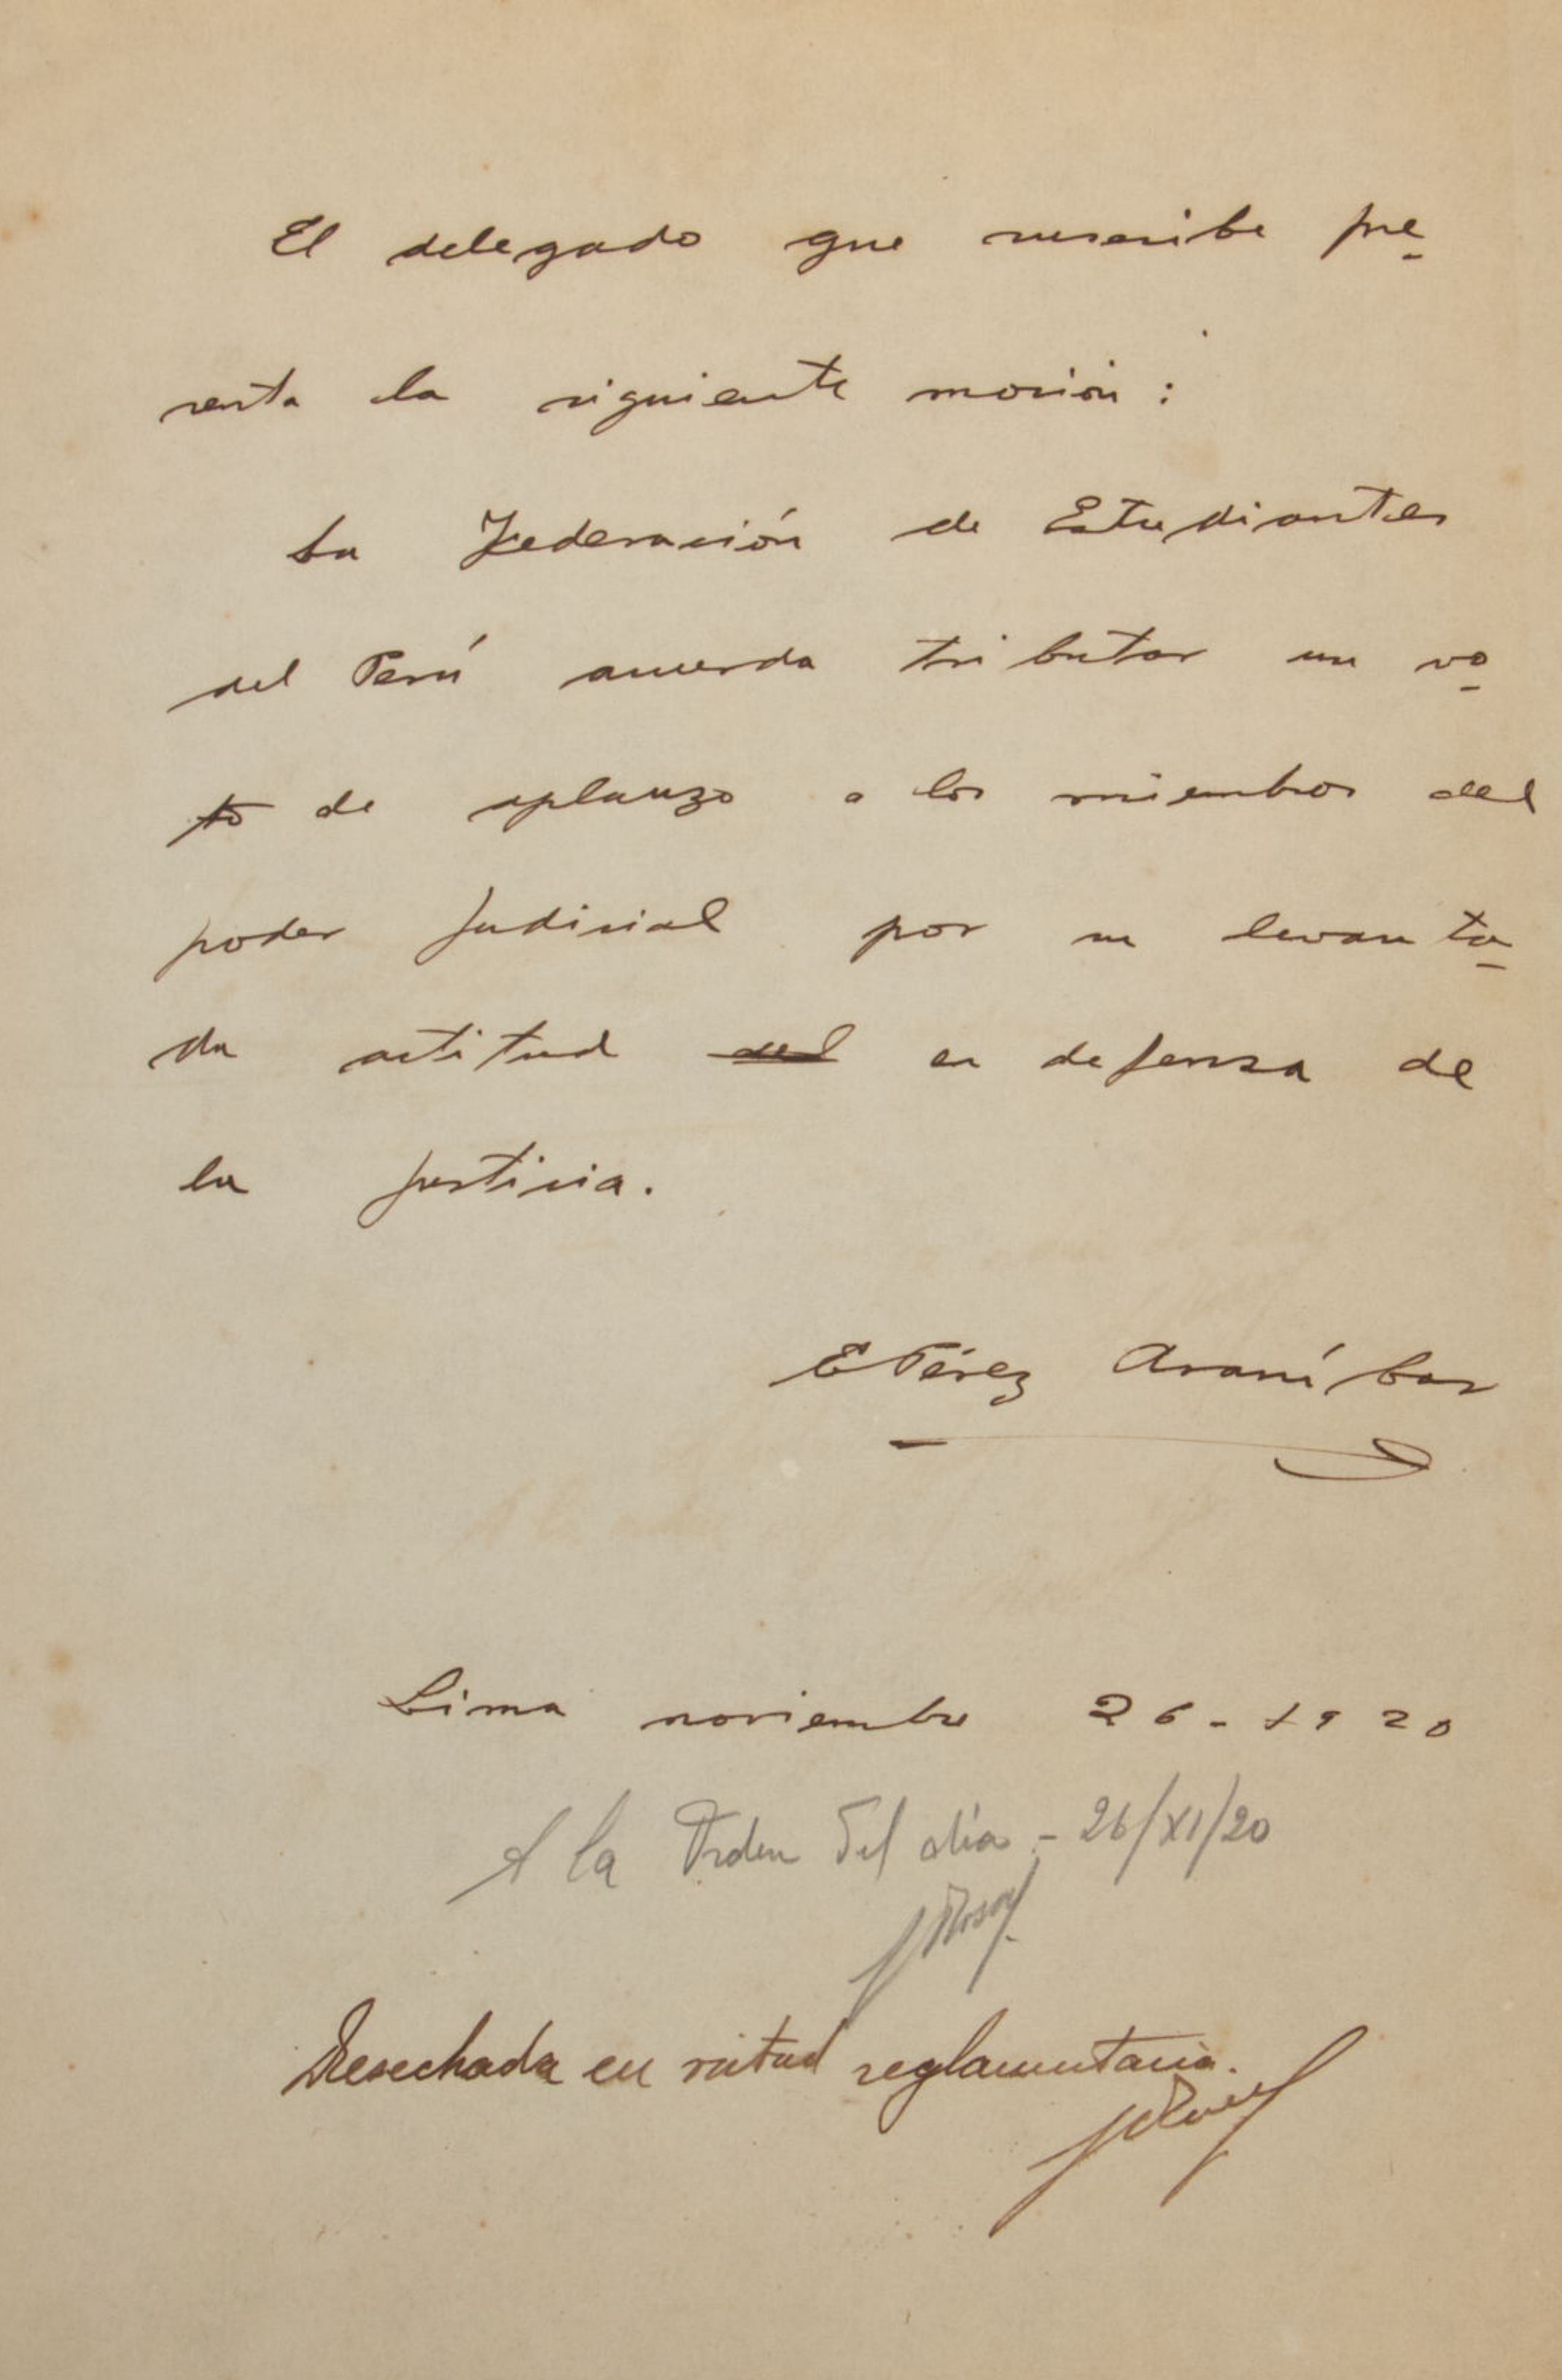 El delegado que suscribe pre
senta la siguiente moción:
La Federación de Estudiantes
del Perú acuerda tributar un vo
to de aplauzo a los miembros del
poder judicial por su levanta
da actitud del en defensa de
la justicia.
E Pérez Araníbar
Lima noviembre 26-1920
A la Orden del día - 26/XI/20
Desechada en votud reglamentaria.